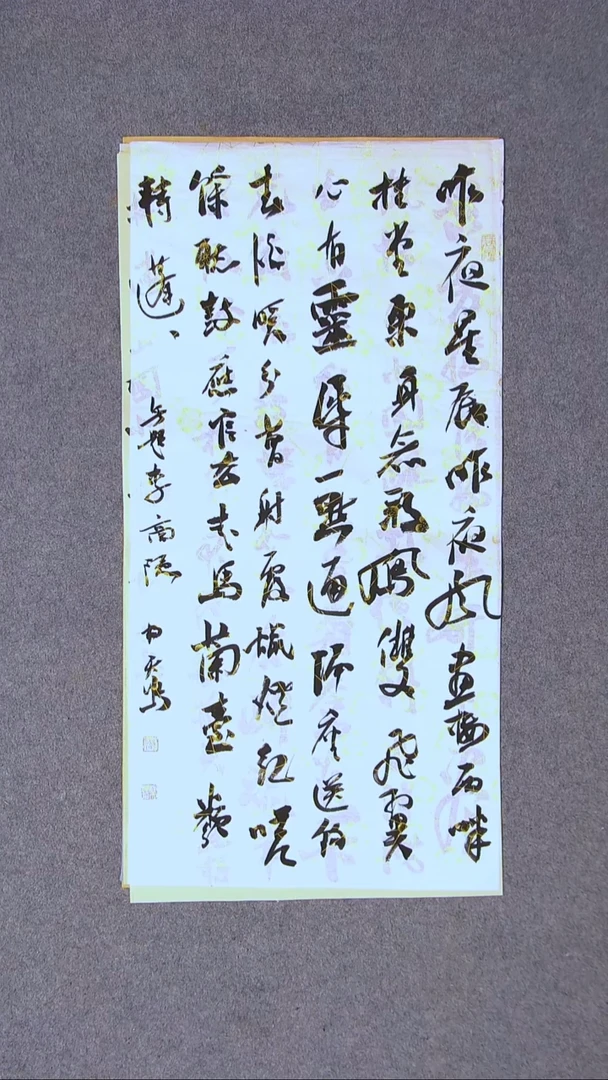 昨夜星辰昨夜風畫樓西畔
桂堂東身無彩鳳雙飛翼
心有靈犀一點通隔座送鉤
春酒暖分曹射覆蠟燈紅嗟
餘聽鼓應官去走馬蘭臺類
轉蓬 無題李商隱